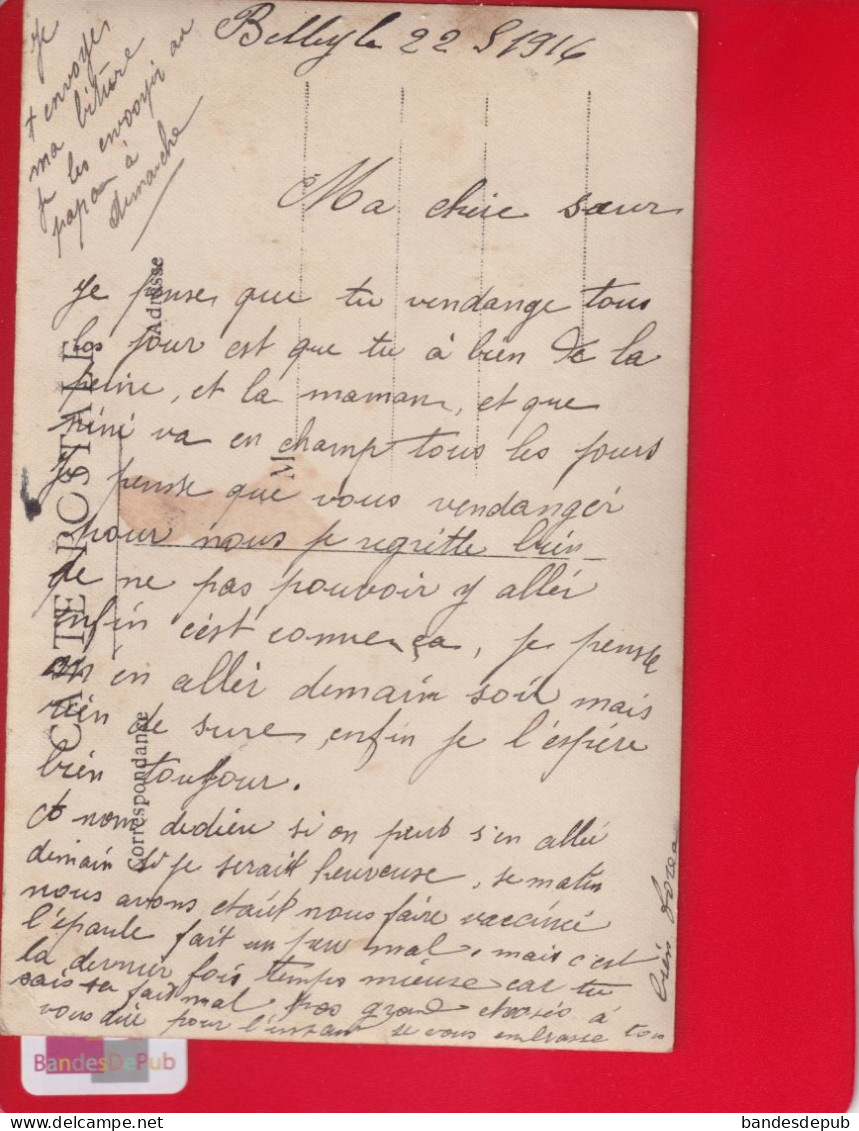 Belley le 22 S 1916
Je
t envoyer
ma biture
je les envoyir au
papa à
dimanche
Ma chère sœur
Je pense que tu vendange tous
les jour est que tu à bien de la
peine, et la maman, et que
nini va en champ tous les jours
Je pense que vous vendanger
pour nous je regrette bien
de ne pas pouvoir y aller
enfin c'est comme ça, je pense
m'en aller demain soir mais
rien de sure, enfin je l'espère
bien toujour.
A nom dedieu si on peut s'en allé
demain si je serait heureuse, se matin
nous avons etaût nous faire vacciné
l'épaule fait un peu mal, mais c'est
la dernier fois temps mieuse car tu
sais sa fait mal pas grand choses à
vous dire pour l'instant je vous embrasse tous
bien
CARTE POSTALE
Correspondance
Adresse
M
BandesDePub
www.delcampe.net
bandesdepub